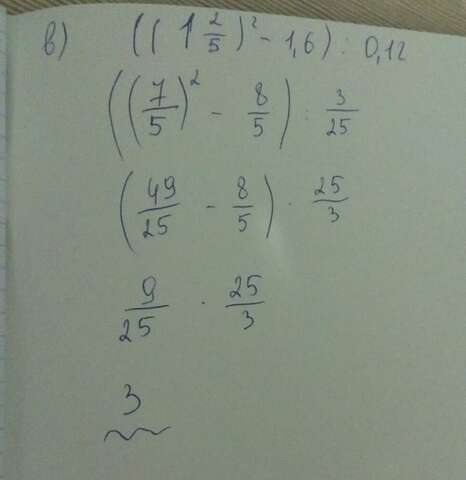 в) ((1 2/5)² - 1,6) : 0,12
((7/5)² - 8/5) : 3/25
(49/25 - 8/5) · 25/3
9/25 · 25/3
3